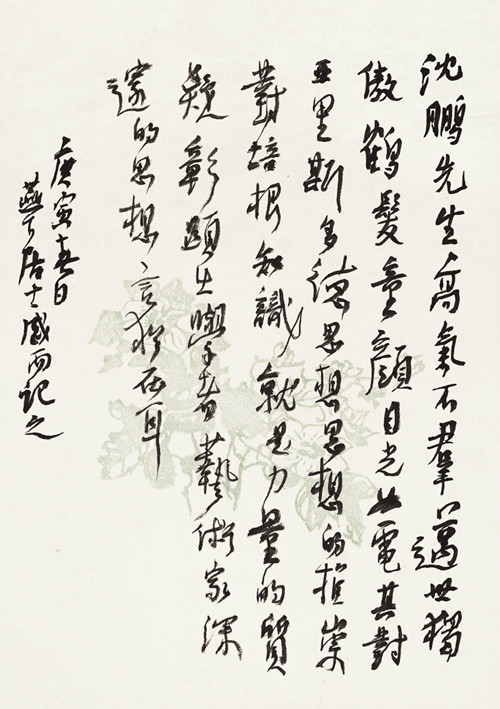 沈鹏先生高氣不羣邁世獨
傲鶴髮童顏目光如電其對
亞里斯多德思想思想的推崇
對培根知識就是力量的質
疑彰顯出學者藝術家深
邃的思想言猶在耳
庚寅春日
居士感而記之